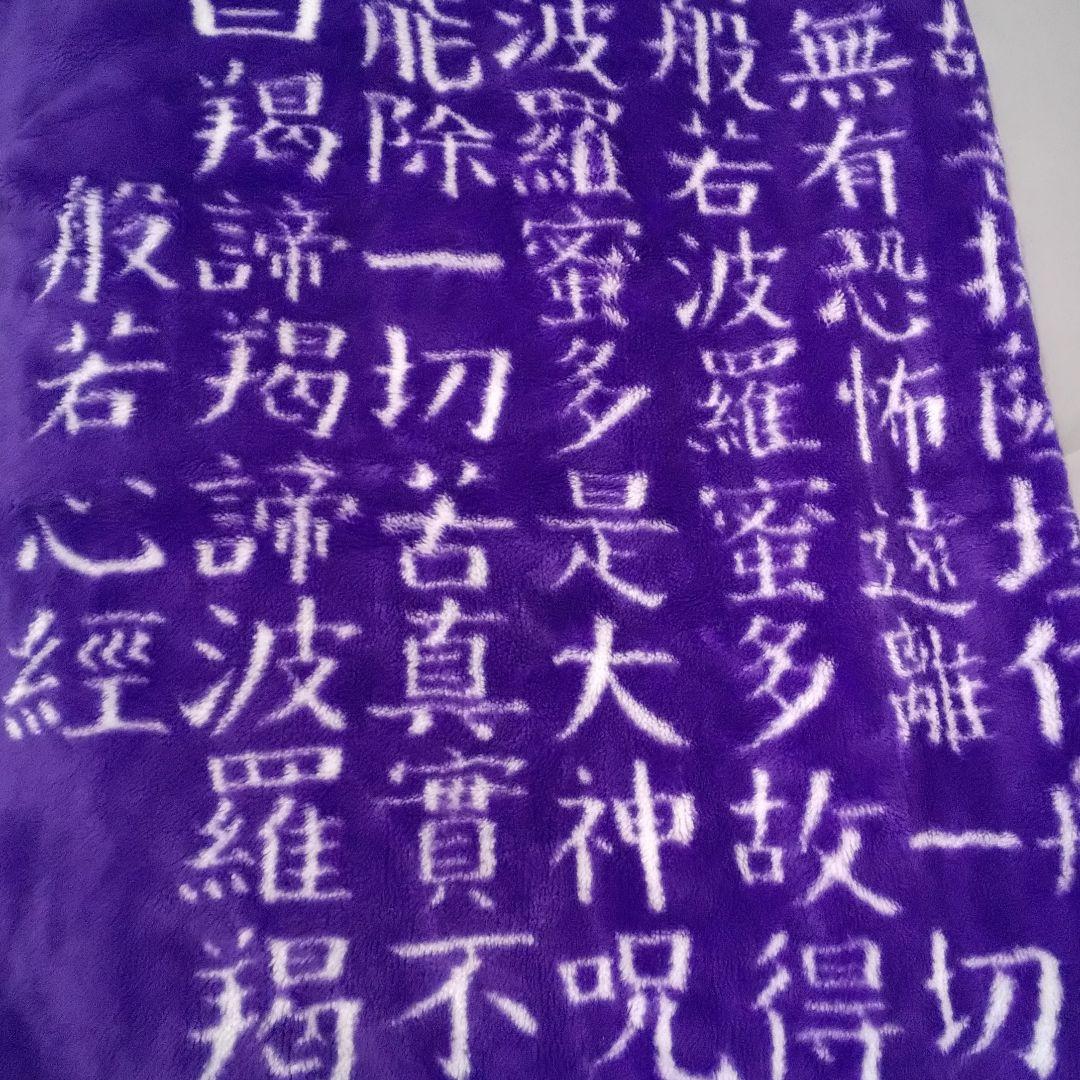 故菩提薩埵依
無有恐怖遠離一切
般若波羅蜜多故得
波羅蜜多是大神呪
能除一切苦真實不
曰羯諦羯諦波羅羯
般若心經